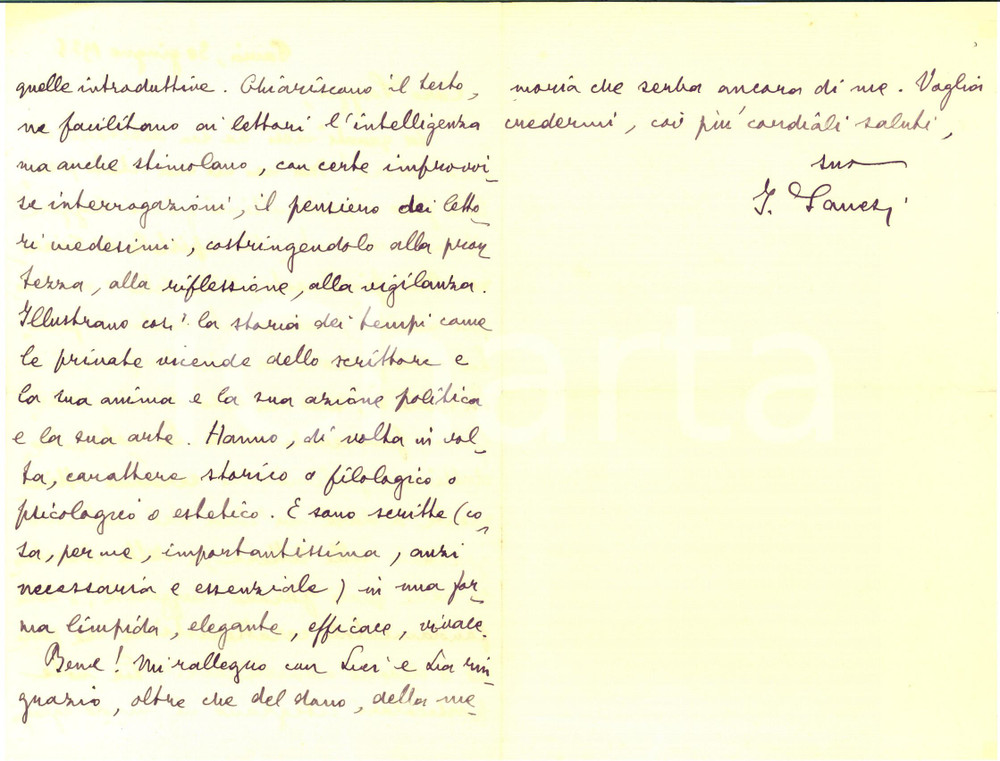 quelle introduttive. Chiariscono il testo,
ne facilitano ai lettori l'intelligenza
ma anche stimolano, con certe improvvi-
se interrogazioni, il pensiero dei letto-
ri medesimi, costringendolo alla pron-
tezza, alla riflessione, alla vigilanza.
Illustrano così la storia dei tempi come
le private vicende dello scrittore e
la sua anima e la sua azione politica
e la sua arte. Hanno, di volta in vol-
ta, carattere storico o filologico o
psicologico o estetico. E sono scritte (co-
sa, per me, importantissima, anzi
necessaria e essenziale) in una for-
ma limpida, elegante, efficace, vivace.
Bene! Mi rallegro con Lei e La rin-
grazio, oltre che del dono, della me-
moria che serba ancora di me. Voglia
credermi, coi più cordiali saluti,
suo
I. Sanesi